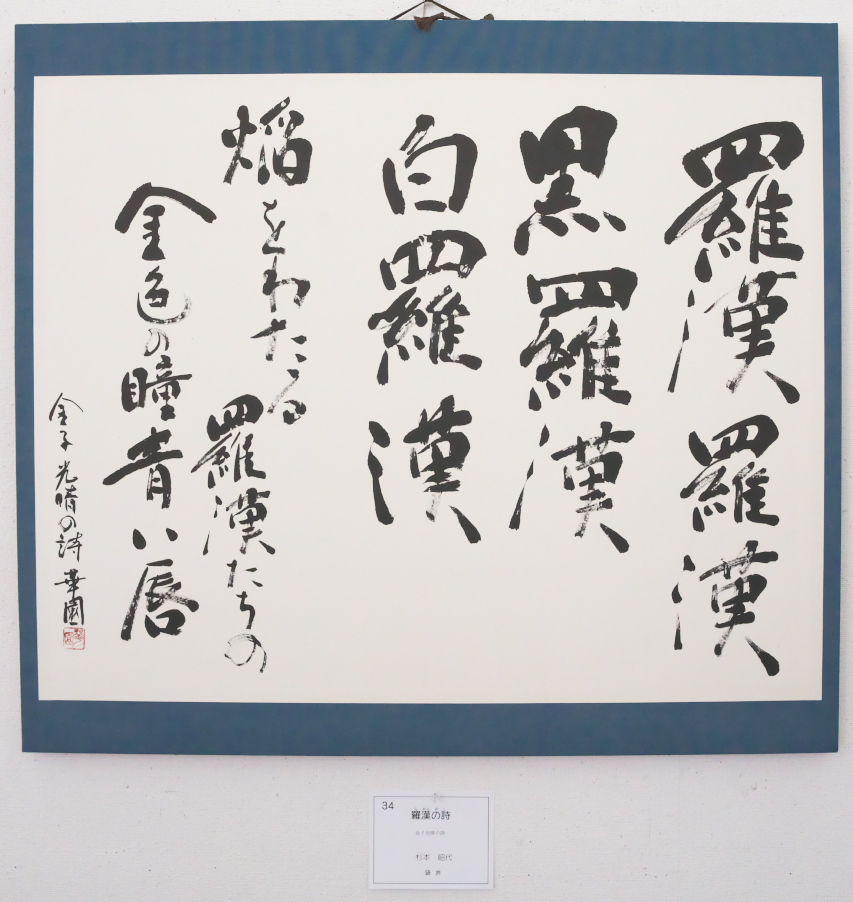 羅漢羅漢
黒羅漢
白羅漢
焔をわたる
羅漢たちの
金色の瞳青い唇
金子光晴の詩 華園
34
羅漢の詩
金子光晴の詩
杉本 昭代